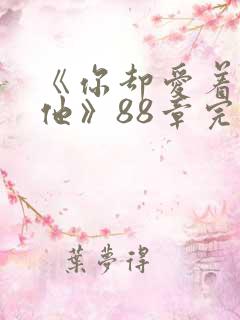 《你却爱着
他》88章完
葉夢得